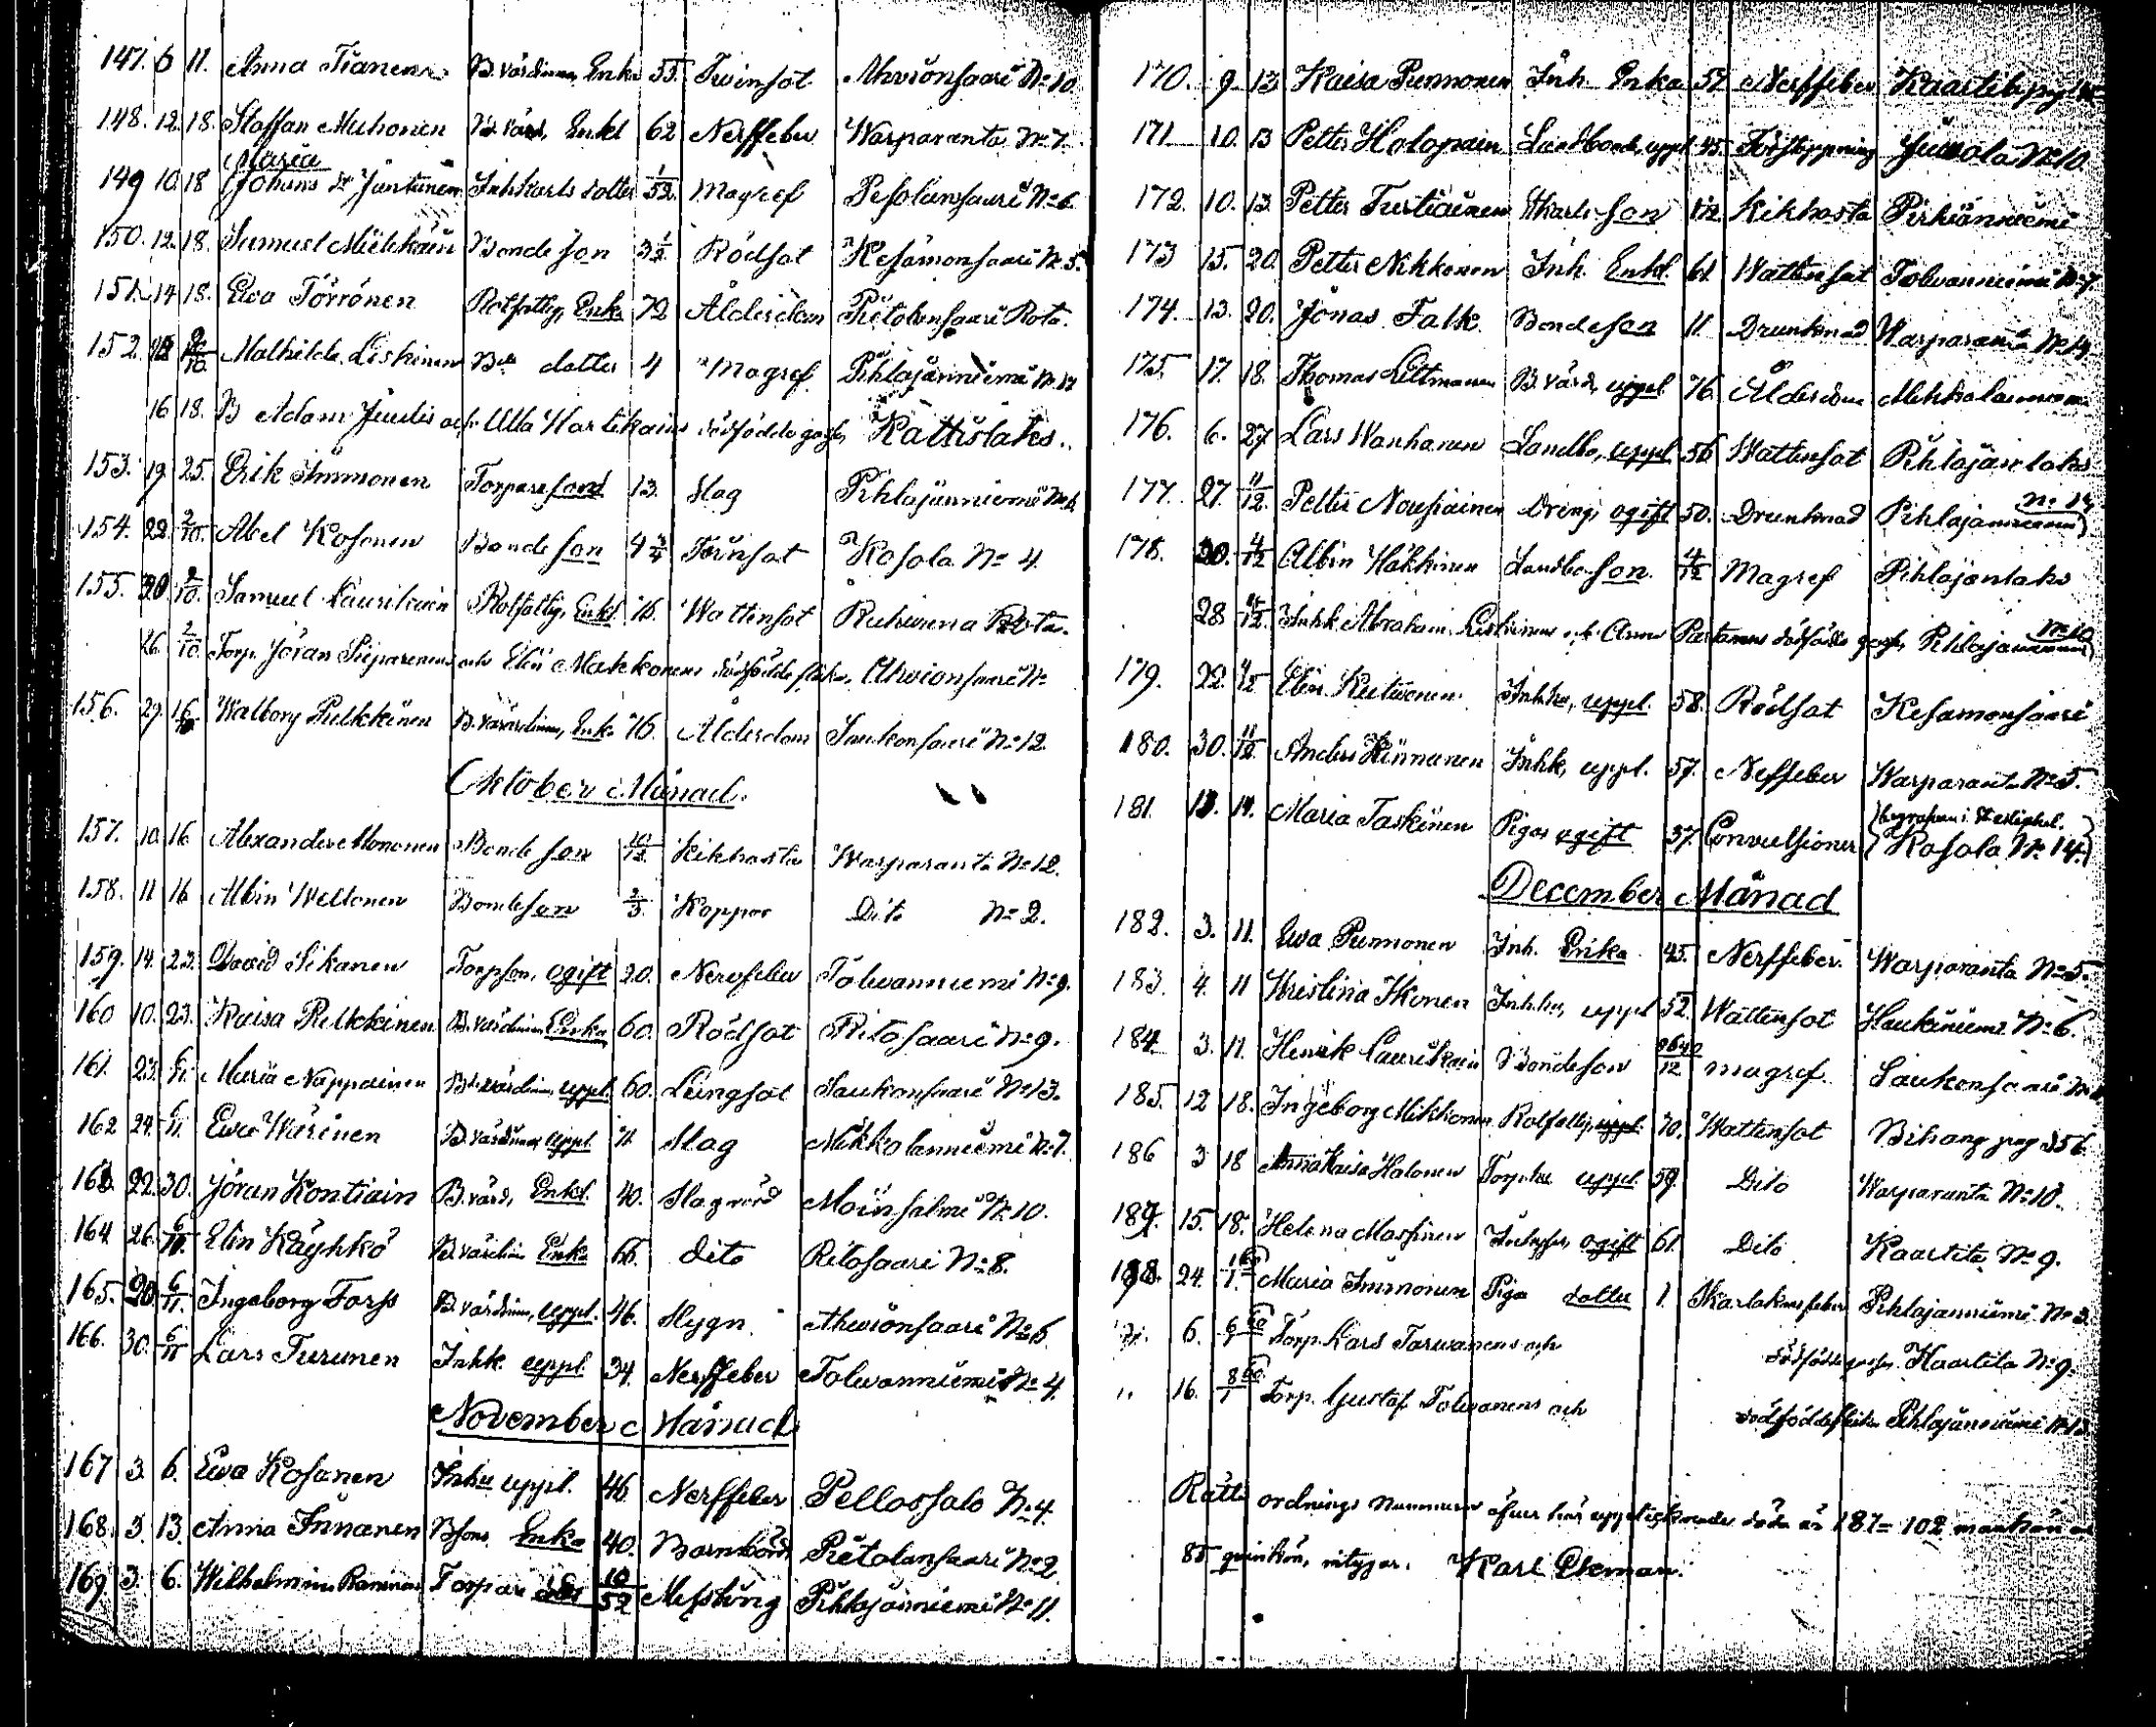 147. 6 11. Anna Tianen B. värdinna, Enka 55 Twinsot Ahvionsaari No 10
148. 12. 18. Staffan Muhonen B. värd, Enkl 62 Nerffeber Warparanta No 7.
Maria
149 10. 18 Johans dr Jantunen Inhkarls dotter 1/52 Magref Pesolansaari No 6.
150. 12. 18. Samuel Miehkäin Bonde son 3 1/2 Rödsot Kesämonsaari No 5.
151. 14 18. Ewa Törrönen Rotfattig, Enka 72 Ålderdom Pietolansaari Rota.
152. Mathilda Liskinen Bde dotter 4 Magref Pihlajänniemi No 12
16 18. B Adam Juutis och Ulla Hartikains dödfödde gosse, Rättislaks.
153. 19. 25. Erik Immonen Torpareson 13. Slag Pihlajänniemi No 6.
154. 22 2/10. Abel Kosonen Bonde son 4 3/4 Twinsot Kosola No 4.
155. 20 2/10. Samuel Laurikain Rotfattig, Enkl 76. Wattensot Ruhwana Rota.
26. 2/10. Torp. Jöran Piiparinens och Elin Makkonens dödfödde flicka, Ahvionsaari No
156. 29. 16/10 Walborg Pulkkinen B. värdinna, Enka 76. Ålderdom Saukonsaari No 12.
Oktober Månad.
157. 10. 16 Alexander Mononen Bonde son 10/12 Kikhosta Warparanta No 12.
158. 11 16 Albin Weltonen Bondeson 2/3. Koppor Dito No 2.
159. 14. 23. David Sikanen Torpson, ogift 20. Nervfeber Tolwanniemi No 9.
160 10. 23. Kaisa Pulkkinen B. värdinna Enka 60. Rödsot Ritosaari No 9.
161. 23. 6/11. Maria Nappainen B. värdinna, uppl. 60. Lungsot Saukonsaari No 13.
162 24. 6/11. Ewa Wärinen B. värdinna, uppl. 71 Slag Mikkolanniemi No 7.
163. 22. 30. Jöran Kontiain B. värd, Enkl. 40. Slagvärd Moinsalmi No 10.
164. 26. 6/11. Elin Käyhkö B. värdin Enka 66. Dito Ritosaari No 8.
165. 20 6/11. Ingeborg Forss B. värdinna, uppl. 46. Stygn Ahvionsaari No 6.
166. 30. 6/11 Lars Turunen Inhk. uppl. 34. Nerffeber Tolwanniemi No 4.
November Månad
167 3. 6. Ewa Kosonen Inhu uppl. 46 Nerffeber Pellossalo No 4.
168. 3 13. Anna Innanen Bsons Enka 40. Barnbörd Pietolansaari No 2.
169. 3. 6. Wilhelmina Torpare dotr 10/52 Messling Pihlajänniemi No 11.
170. 9. 13 Kaisa Punnonen Inh. Enka 57 Nerffeber Kaartila
171 10. 13 Petter Holopain Landbonde, uppl. 45. Förstoppning Juvola No 10.
172. 10. 13. Petter Turtiainen Ihkarls son 1/12 Kikhosta Pirhiänniemi
173 15. 20. Petter Nikkonen Inh. Enkl. 61. Wattensot Tolwanniemi No 7.
174. 13. 20. Jonas Falk Bondeson 11. Drunknad Warparanta No 14.
175. 17. 18. Thomas Littmanen B. värd, uppl 76. Ålderdom Mikkolanniemi
176. 6. 27 Lars Wanhanen Landbo, uppl 56 Wattensot Pihlajänlaks
177. 27. 11/12. Petter Nousiainen Dreng, ogift 50. Drunknad Pihlajanniemi No 14
178. 20. 4/12 Albin Häkkinen Landbo son. 4/12 Magref Pihlajänlaks
28 11/12. Inhk Abraham Liskinens och Anna Partanens dödfödde gosse, Pihlajanniemi No 10
179. 22. 4/12 Elin Kutwonen Inhhu, uppl. 58. Rödsot Kesamonsaari
180. 30. 11/12. Anders Hännanen Inhk, uppl. 57. Nerffeber Warparanta No 5.
181. 13. 14. Maria Taskinen Piga ogift 37. Convulsioner Kosola No 14.
December Månad
182. 3. 11. Ewa Punnonen Inh. Enka 45. Nerffeber. Warparanta No 5.
183. 4. 11 Kristina Ikonen Inhhu, uppl 52. Wattensot Haukiniemi No 6.
184. 3. 11. Henrik Laurikain Bondeson magref. Saukonsaari No
185. 12 18. Ingeborg Mikkonen Rotfattig, uppl. 70. Wattensot Bihang pag 356
186 3 18 Anna Kaisa Halonen Torphu uppl. 59. Dito Warparanta No 10.
187. 15. 18. Helena Maskinen Inhyses, ogift 61. Dito Kaartila No 9.
188. 24. Maria Immonen Piga dotter 1. Skarlakansfeber Pihlajanniemi No 3.
6. Torp. Lars Tarwanens och dödfödde gosse. Kaartila No 9.
16. Torp. Gustaf Tolwanens och dödfödde flicka Pihlajänniemi No 13
Rätta ordnings nummern öfver här upptecknade döda är 187 = 102 mankön och
85 qvinkön, intygar. Karl Ekman.